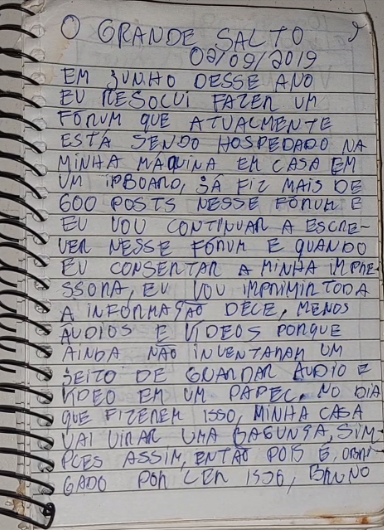 O GRANDE SALTO
02/09/2019
EM JUNHO DESSE ANO
EU RESOLVI FAZER UM
FÓRUM QUE ATUALMENTE
ESTÁ SENDO HOSPEDADO NA
MINHA MÁQUINA EM CASA EM
UM IPBOARD, JÁ FIZ MAIS DE
600 POSTS NESSE FÓRUM E
EU VOU CONTINUAR A ESCRE-
VER NESSE FÓRUM E QUANDO
EU CONSERTAR A MINHA IMPRE-
SSORA, EU VOU IMPRIMIR TODA
A INFORMAÇÃO DELE, MENOS
ÁUDIOS E VÍDEOS PORQUE
AINDA NÃO INVENTARAM UM
JEITO DE GUARDAR ÁUDIO E
VÍDEO EM UM PAPEL. NO DIA
QUE FIZEREM ISSO, MINHA CASA
VAI VIRAR UMA BAGUNÇA, SIM-
PLES ASSIM, ENTÃO POIS É, OBRI-
GADO POR LER ISSO, BRUNO